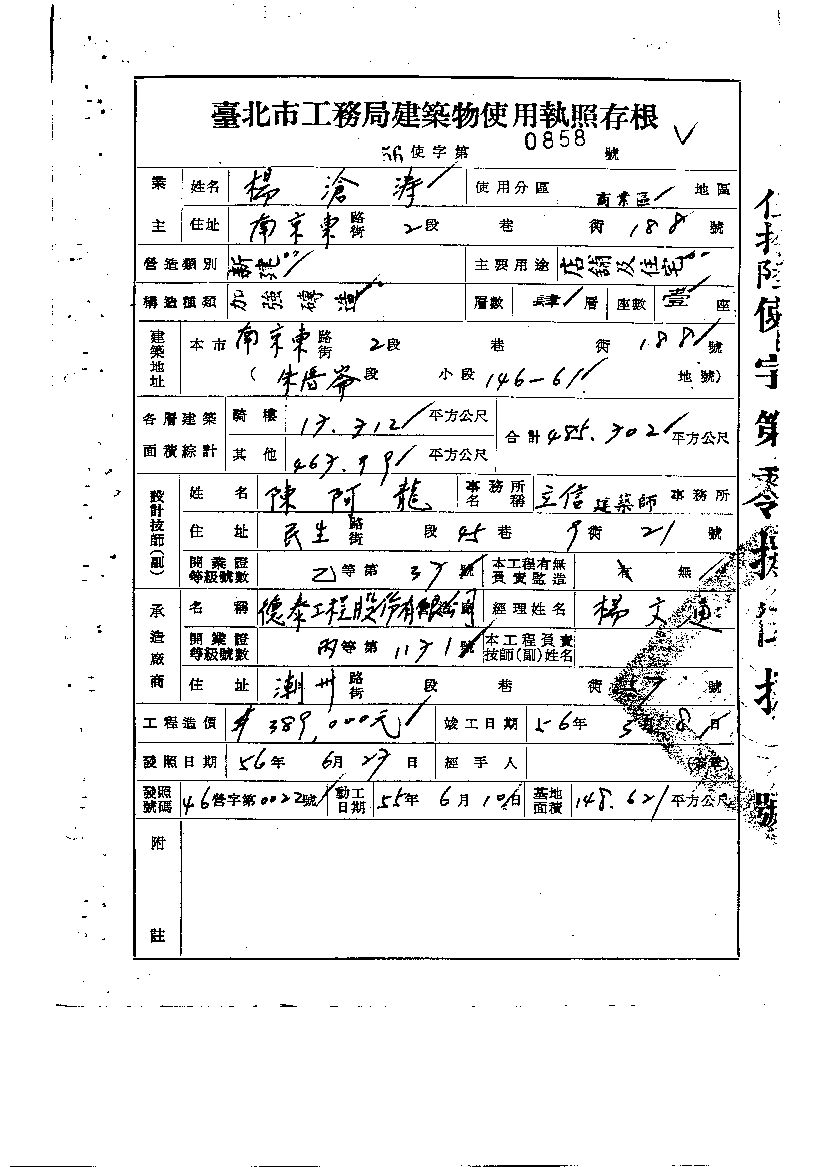 臺北市工務局建築物使用執照存根
56使字第0858號
業主 姓名 楊滄濤 使用分區 商業區 地區
住址 南京東路街2段 巷 街188號
營造類別 新建 主要用途 店鋪及住宅
構造種類 加強磚造 層數 肆層 座數 壹座
建築地址 本市南京東路街2段 巷 街188號
(朱厝崙段 小段146-61 地號)
各層建築面積綜計 騎樓 17.312平方公尺 合計485.302平方公尺
其他 467.99平方公尺
設計技師(副) 姓名 陳阿龍 事務所名稱 立信建築師事務所
住址 民生路街 段45巷9街21號
開業證等級號數 乙等第37號 本工程有無負責監造 有 無
承造廠商 名稱 德泰工程股份有限公司 經理姓名 楊文通
開業證等級號數 丙等第1171號 本工程負責技師(副)姓名
住址 潮州路街 段 巷 街57號
工程造價 $389,000元 竣工日期 56年5月8日
發照日期 56年6月27日 經手人
發照號碼 46營字第0022號 動工日期 55年6月10日 基地面積 148.62平方公尺
附註
伍拾陸使字第零捌伍捌號